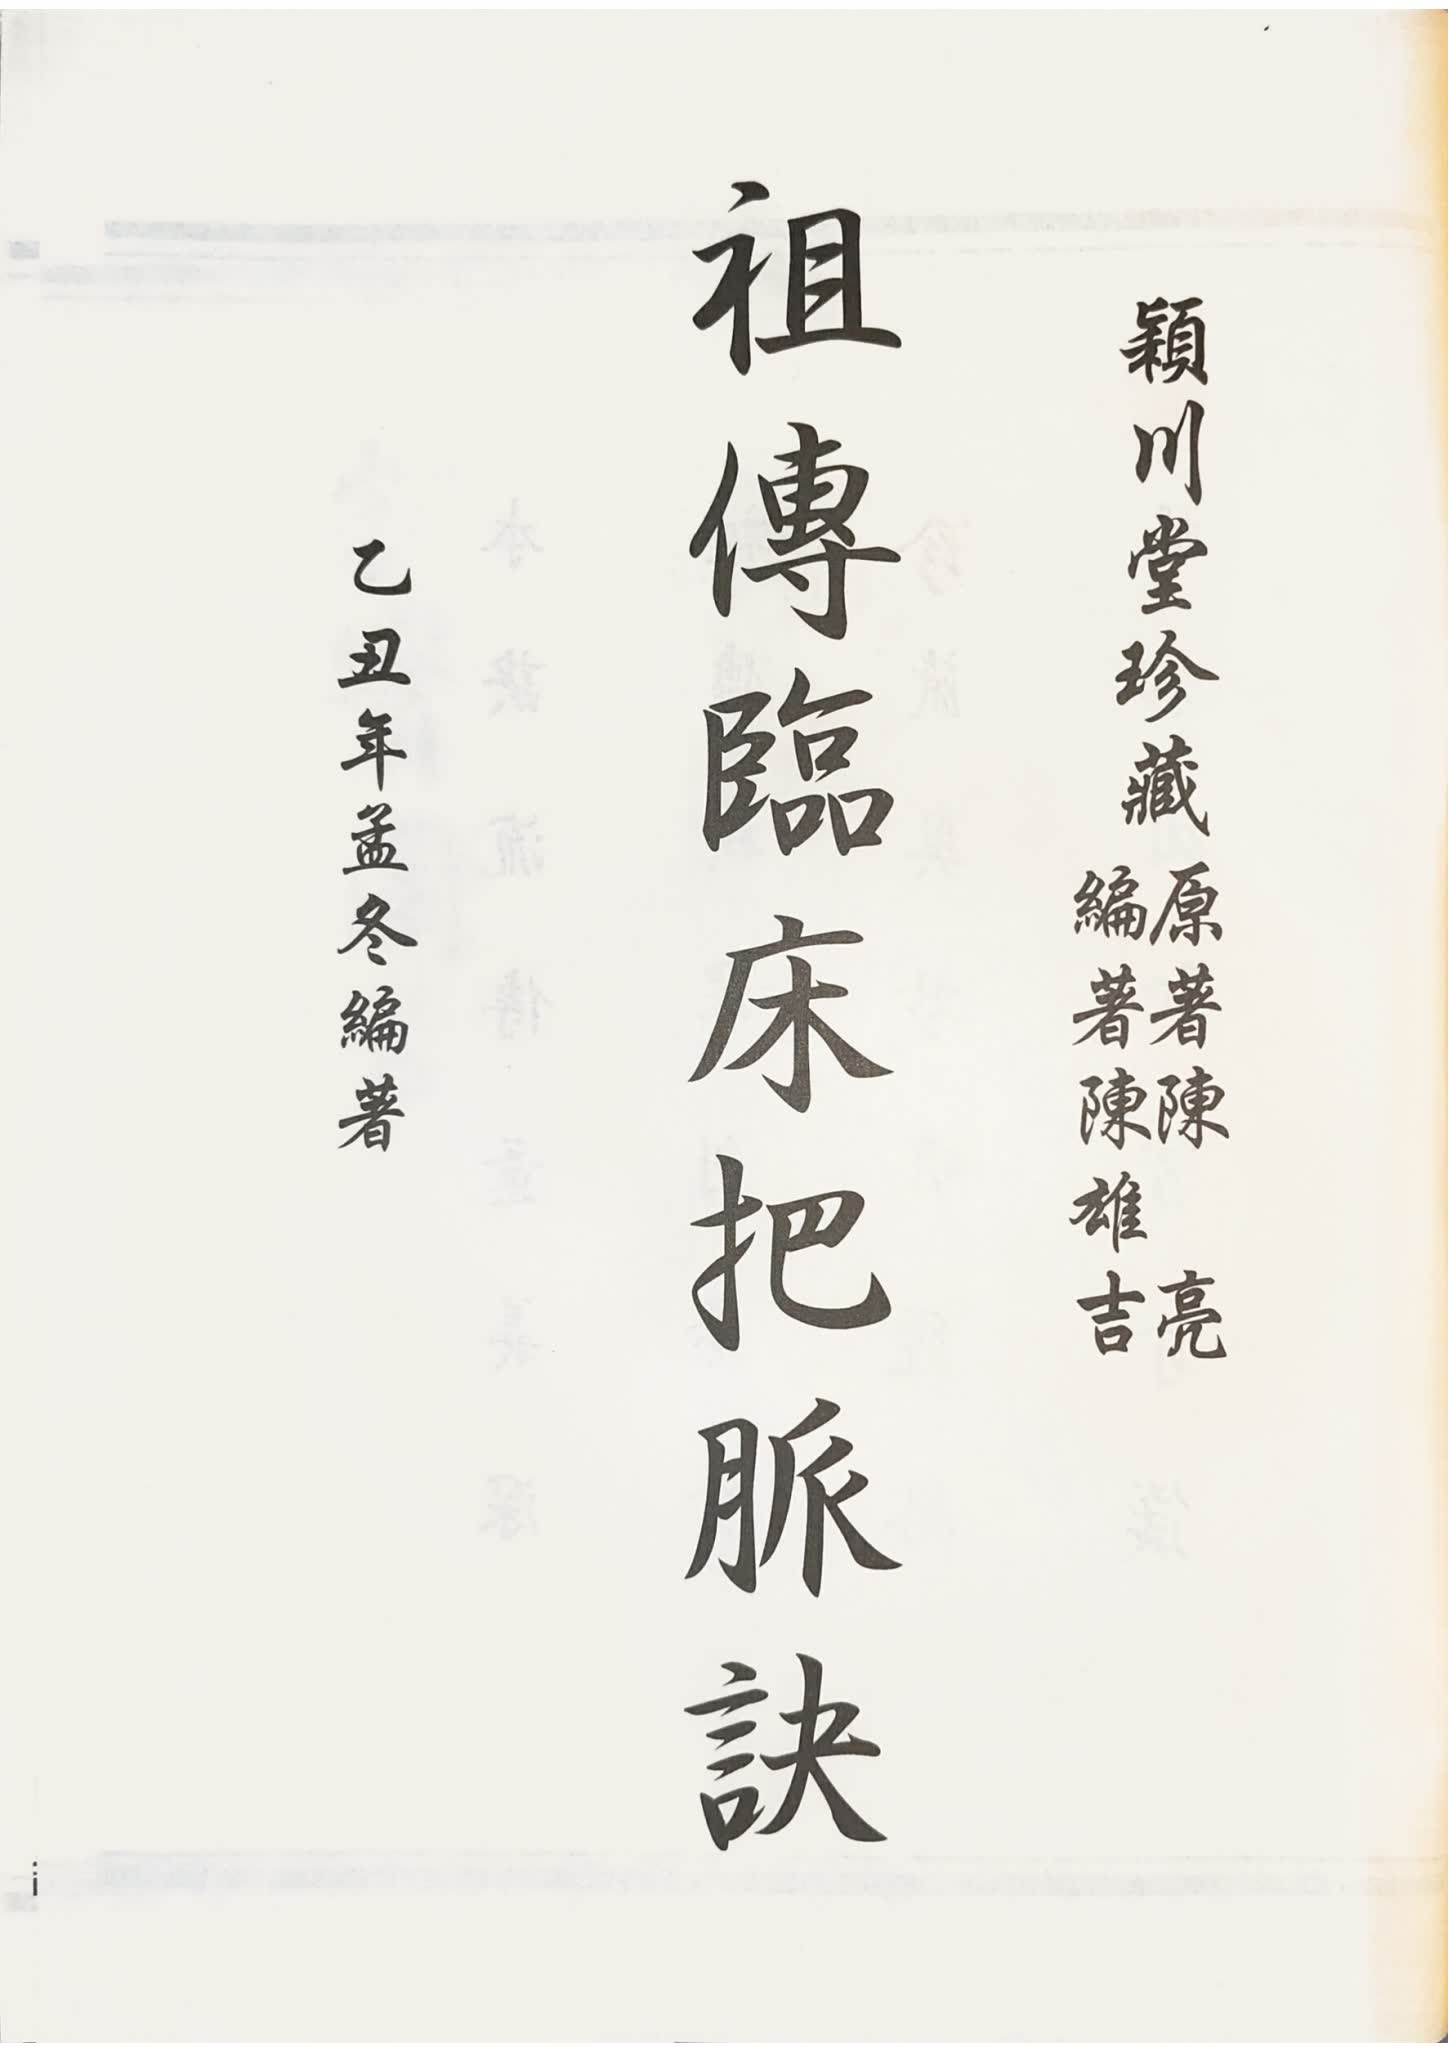 穎川堂珍藏
原著陳亮
編著陳雄吉
祖傳臨床把脈訣
乙丑年孟冬編著
i